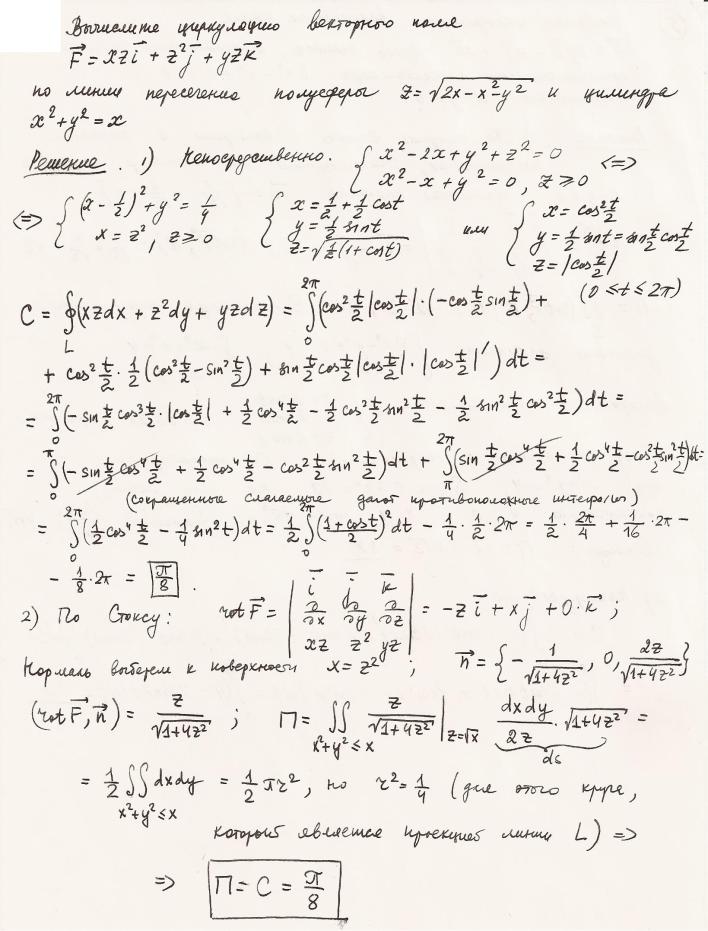 Вычислите циркуляцию векторного поля
F⃗ = xz i⃗ + z² j⃗ + yz k⃗
по линии пересечения полусферы z = √(2x - x² - y²) и цилиндра
x² + y² = x
Решение. 1) Непосредственно. { x² - 2x + y² + z² = 0 <=>
x² - x + y² = 0, z ≥ 0
<=> { (x - 1/2)² + y² = 1/4 { x = 1/2 + 1/2 cos t или { x = cos² t/2
x = z², z ≥ 0 y = 1/2 sin t y = 1/2 sin t = sin t/2 cos t/2
z = √(1/2 (1 + cos t)) z = |cos t/2|
(0 ≤ t ≤ 2π)
C = ∮_L (xz dx + z² dy + yz dz) = ∫₀^{2π} (cos² t/2 |cos t/2| · (-cos t/2 sin t/2) +
+ cos² t/2 · 1/2 (cos² t/2 - sin² t/2) + sin t/2 cos t/2 |cos t/2| · |cos t/2|′) dt =
= ∫₀^{2π} (- sin t/2 cos³ t/2 · |cos t/2| + 1/2 cos⁴ t/2 - 1/2 cos² t/2 sin² t/2 - 1/2 sin² t/2 cos² t/2) dt =
= ∫₀^π (- sin t/2 cos⁴ t/2 + 1/2 cos⁴ t/2 - cos² t/2 sin² t/2) dt + ∫_π^{2π} (sin t/2 cos⁴ t/2 + 1/2 cos⁴ t/2 - cos² t/2 sin² t/2) dt =
(сокращенные слагаемые дают противоположные интегралы)
= ∫₀^{2π} (1/2 cos⁴ t/2 - 1/4 sin² t) dt = 1/2 ∫₀^{2π} ((1 + cos t)/2)² dt - 1/4 · 1/2 · 2π = 1/2 · 2π/4 + 1/16 · 2π -
- 1/8 · 2π = π/8 .
2) По Стоксу: rot F⃗ = | i⃗ j⃗ k⃗ | = -z i⃗ + x j⃗ + 0 · k⃗ ;
| ∂/∂x ∂/∂y ∂/∂z |
| xz z² yz |
Нормаль выберем к поверхности x = z² ; n⃗ = {- 1/√(1+4z²), 0, 2z/√(1+4z²)}
(rot F⃗, n⃗) = z/√(1+4z²) ; П = ∬_{x²+y²≤x} z/√(1+4z²) |_{z=√x} dxdy/2z · √(1+4z²) =
ds
= 1/2 ∬_{x²+y²≤x} dxdy = 1/2 πr², но r² = 1/4 (для этого круга,
который является проекцией линии L) =>
=> П = C = π/8